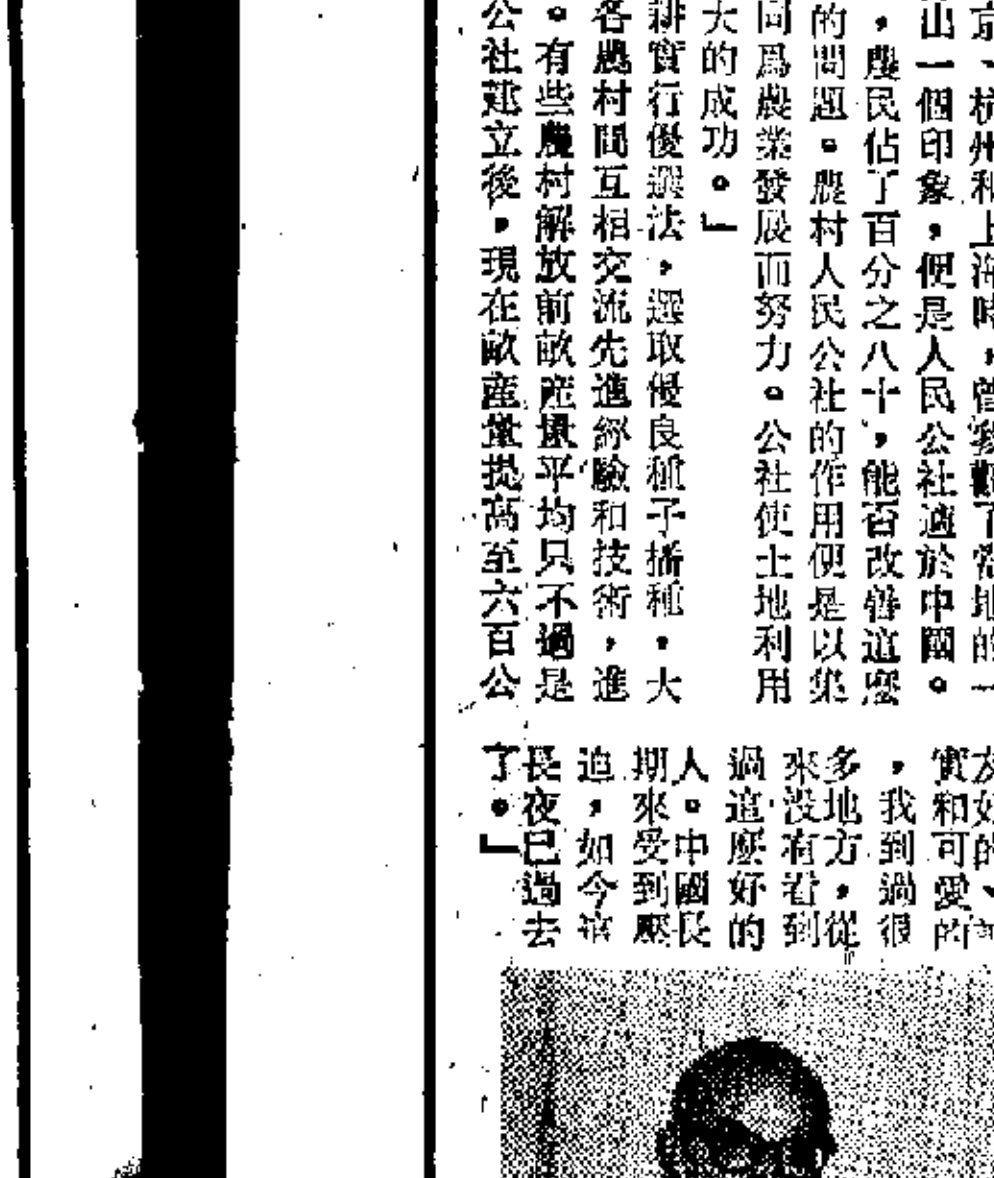 京、杭州和上海時，曾參觀了當地的一
出一個印象，便是人民公社適於中國。
，農民佔了百分之八十，能否改善這麼
的問題。農村人民公社的作用便是以集
同爲農業發展而努力。公社使土地利用
大的成功。」
耕實行優選法，選取優良種子播種，大
各農村間互相交流先進經驗和技術，進
。有些農村解放前畝產量平均只不過是
公社建立後，現在畝產量提高至六百公
友好的、
實和可愛的
，我到過很
多地方，從
來没有看到
過這麼好的
人。中國長
期來受到壓
迫，如今這
長夜已過去
了。」